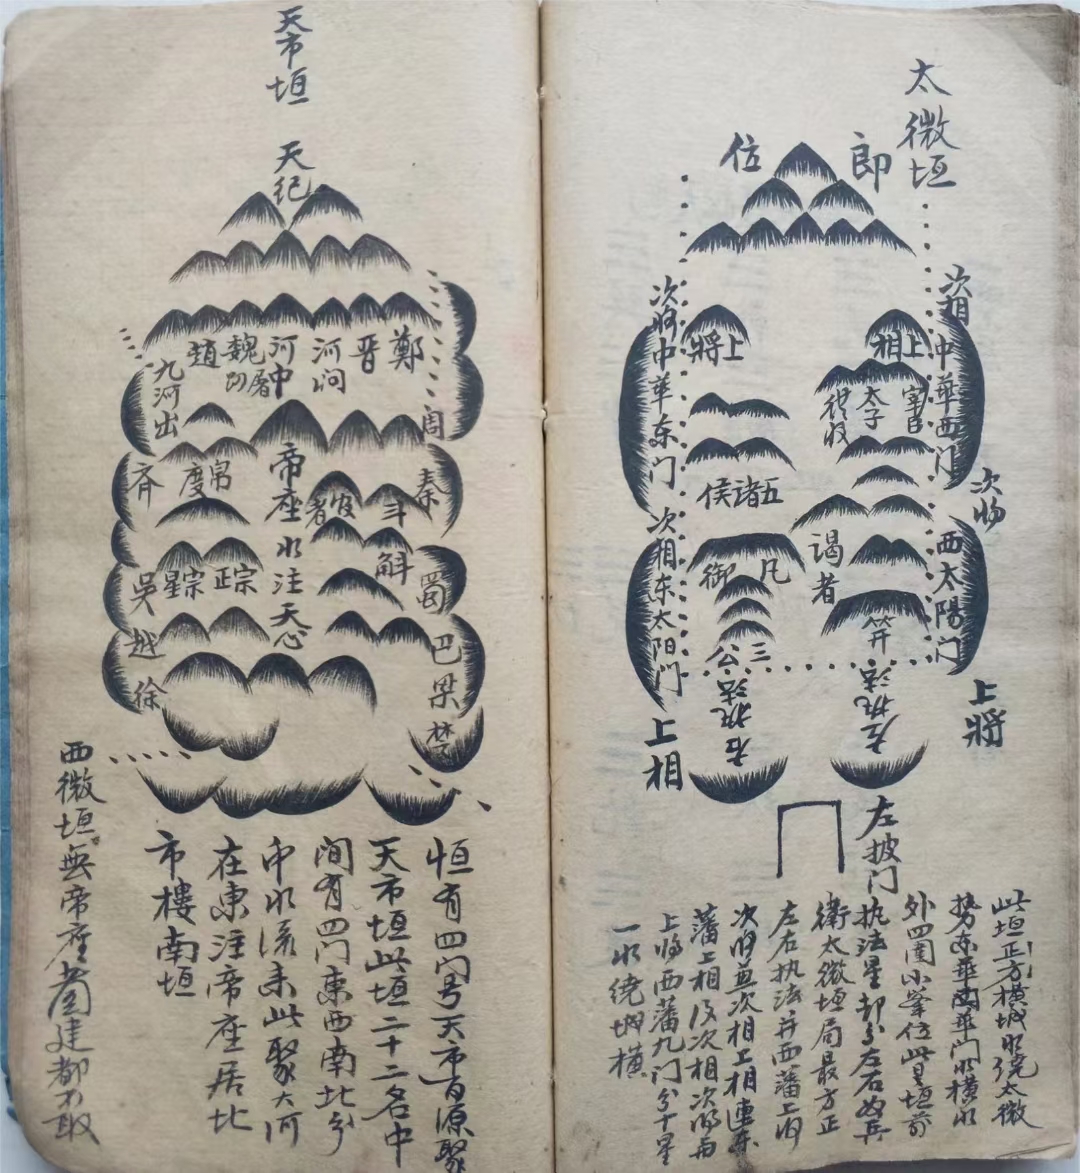 太微垣
郎
位
次相
中華西门
次将
西太陽门
上將
次将
中華东门
次相
东太阳门
上相
上將
上相
太子
宰臣
五諸侯
谒者
凡
御
三公
右执法
左执法
左披门
此垣正方横城水绕太微
势东華西華门水横水
外四围小峯位此是垣前
执法星却分左右如兵
衛太微垣局最方正
左右执法并西藩上将
次将並次相上相連东
藩上相及次相次将与
上将西藩九门分十星
一水绕城横
天市垣
天纪
鄭
晋
河间
河中
魏
趙
九河出
周
秦
蜀
巴
梁
楚
齐
吴
越
徐
帝座水注天心
帛度
宦者
斗
斛
宗正
宗星
恒有四门号天市百源聚
天市垣此垣二十二名中
间有四门東西南北分
中水流未此聚大河
在東注帝座居北
市樓南垣
西微垣無帝座蓄建都不取